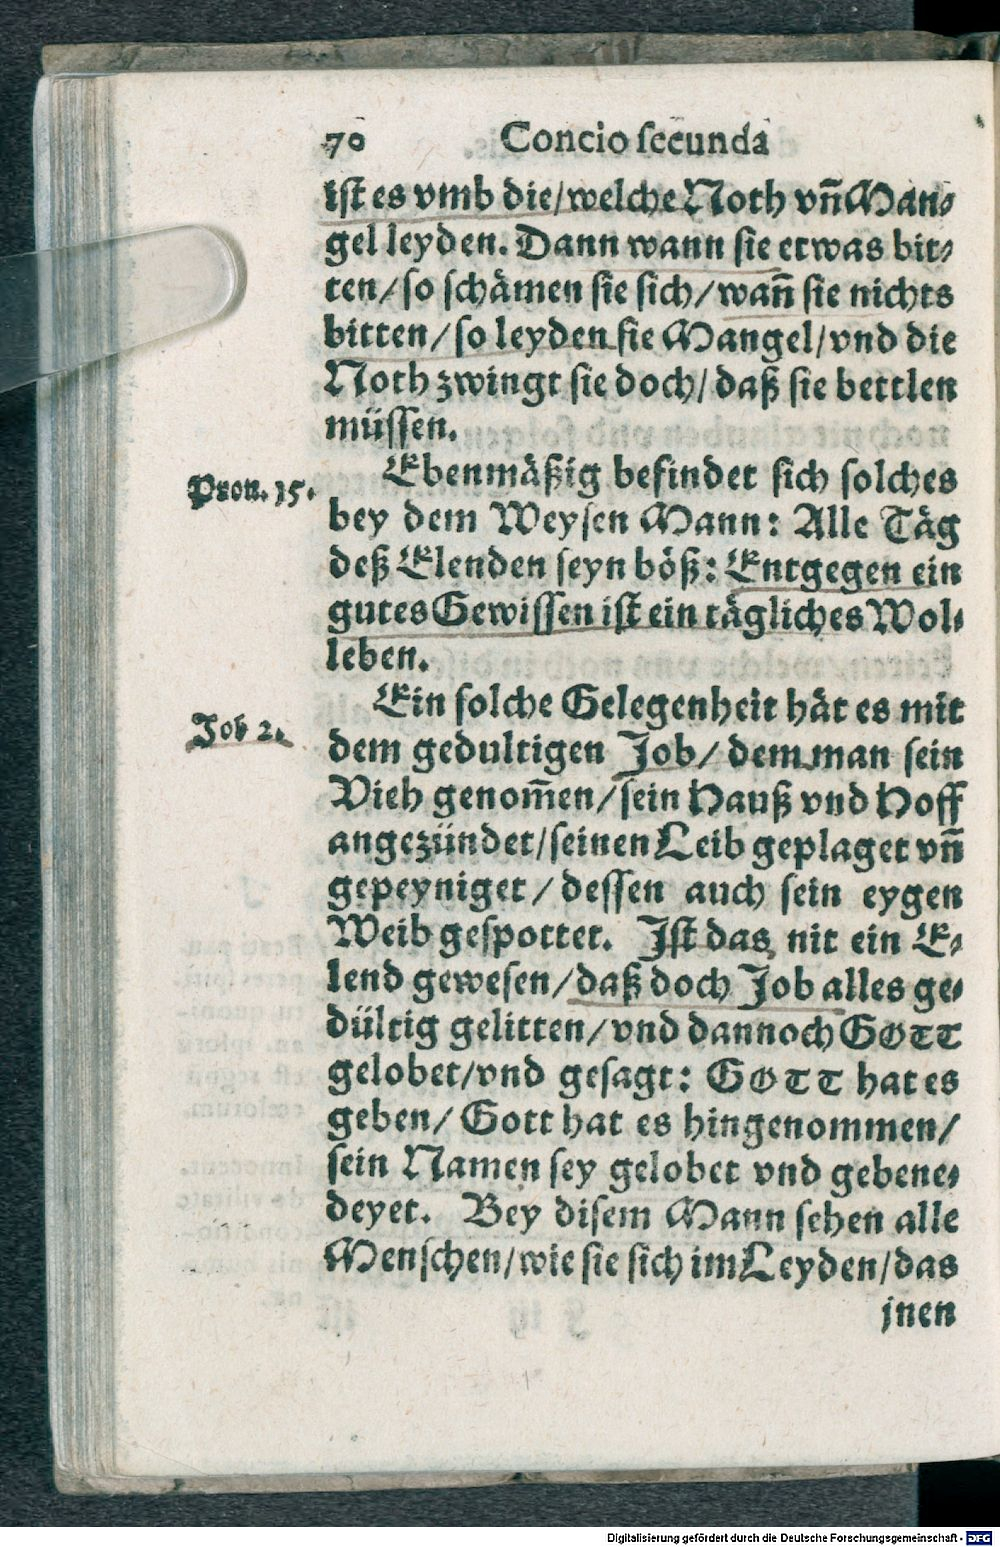 70 Concio secunda
ist es vmb die/welche Noth vñ Man⸗
gel leyden. Dann wann sie etwas bit⸗
ten/so schämen sie sich/wañ sie nichts
bitten/so leyden sie Mangel/vnd die
Noth zwingt sie doch/daß sie bettlen
müssen.
Ebenmäßig befindet sich solches
Prou. 15.
bey dem Weysen Mann: Alle Täg
deß Elenden seyn böß: Entgegen ein
gutes Gewissen ist ein tägliches Wol⸗
leben.
Ein solche Gelegenheit hät es mit
Job 2.
dem gedultigen Job/dem man sein
Vieh genom̃en/sein Hauß vnd Hoff
angezündet/seinen Leib geplaget vñ
gepeyniget/dessen auch sein eygen
Weib gespottet. Ist das nit ein E⸗
lend gewesen/daß doch Job alles ge⸗
dültig gelitten/vnd dannoch GOTT
gelobet/vnd gesagt: GOTT hat es
geben/Gott hat es hingenommen/
sein Namen sey gelobet vnd gebene⸗
deyet. Bey disem Mann sehen alle
Menschen/wie sie sich im Leyden/das
jnen
Digitalisierung gefördert durch die Deutsche Forschungsgemeinschaft - DFG